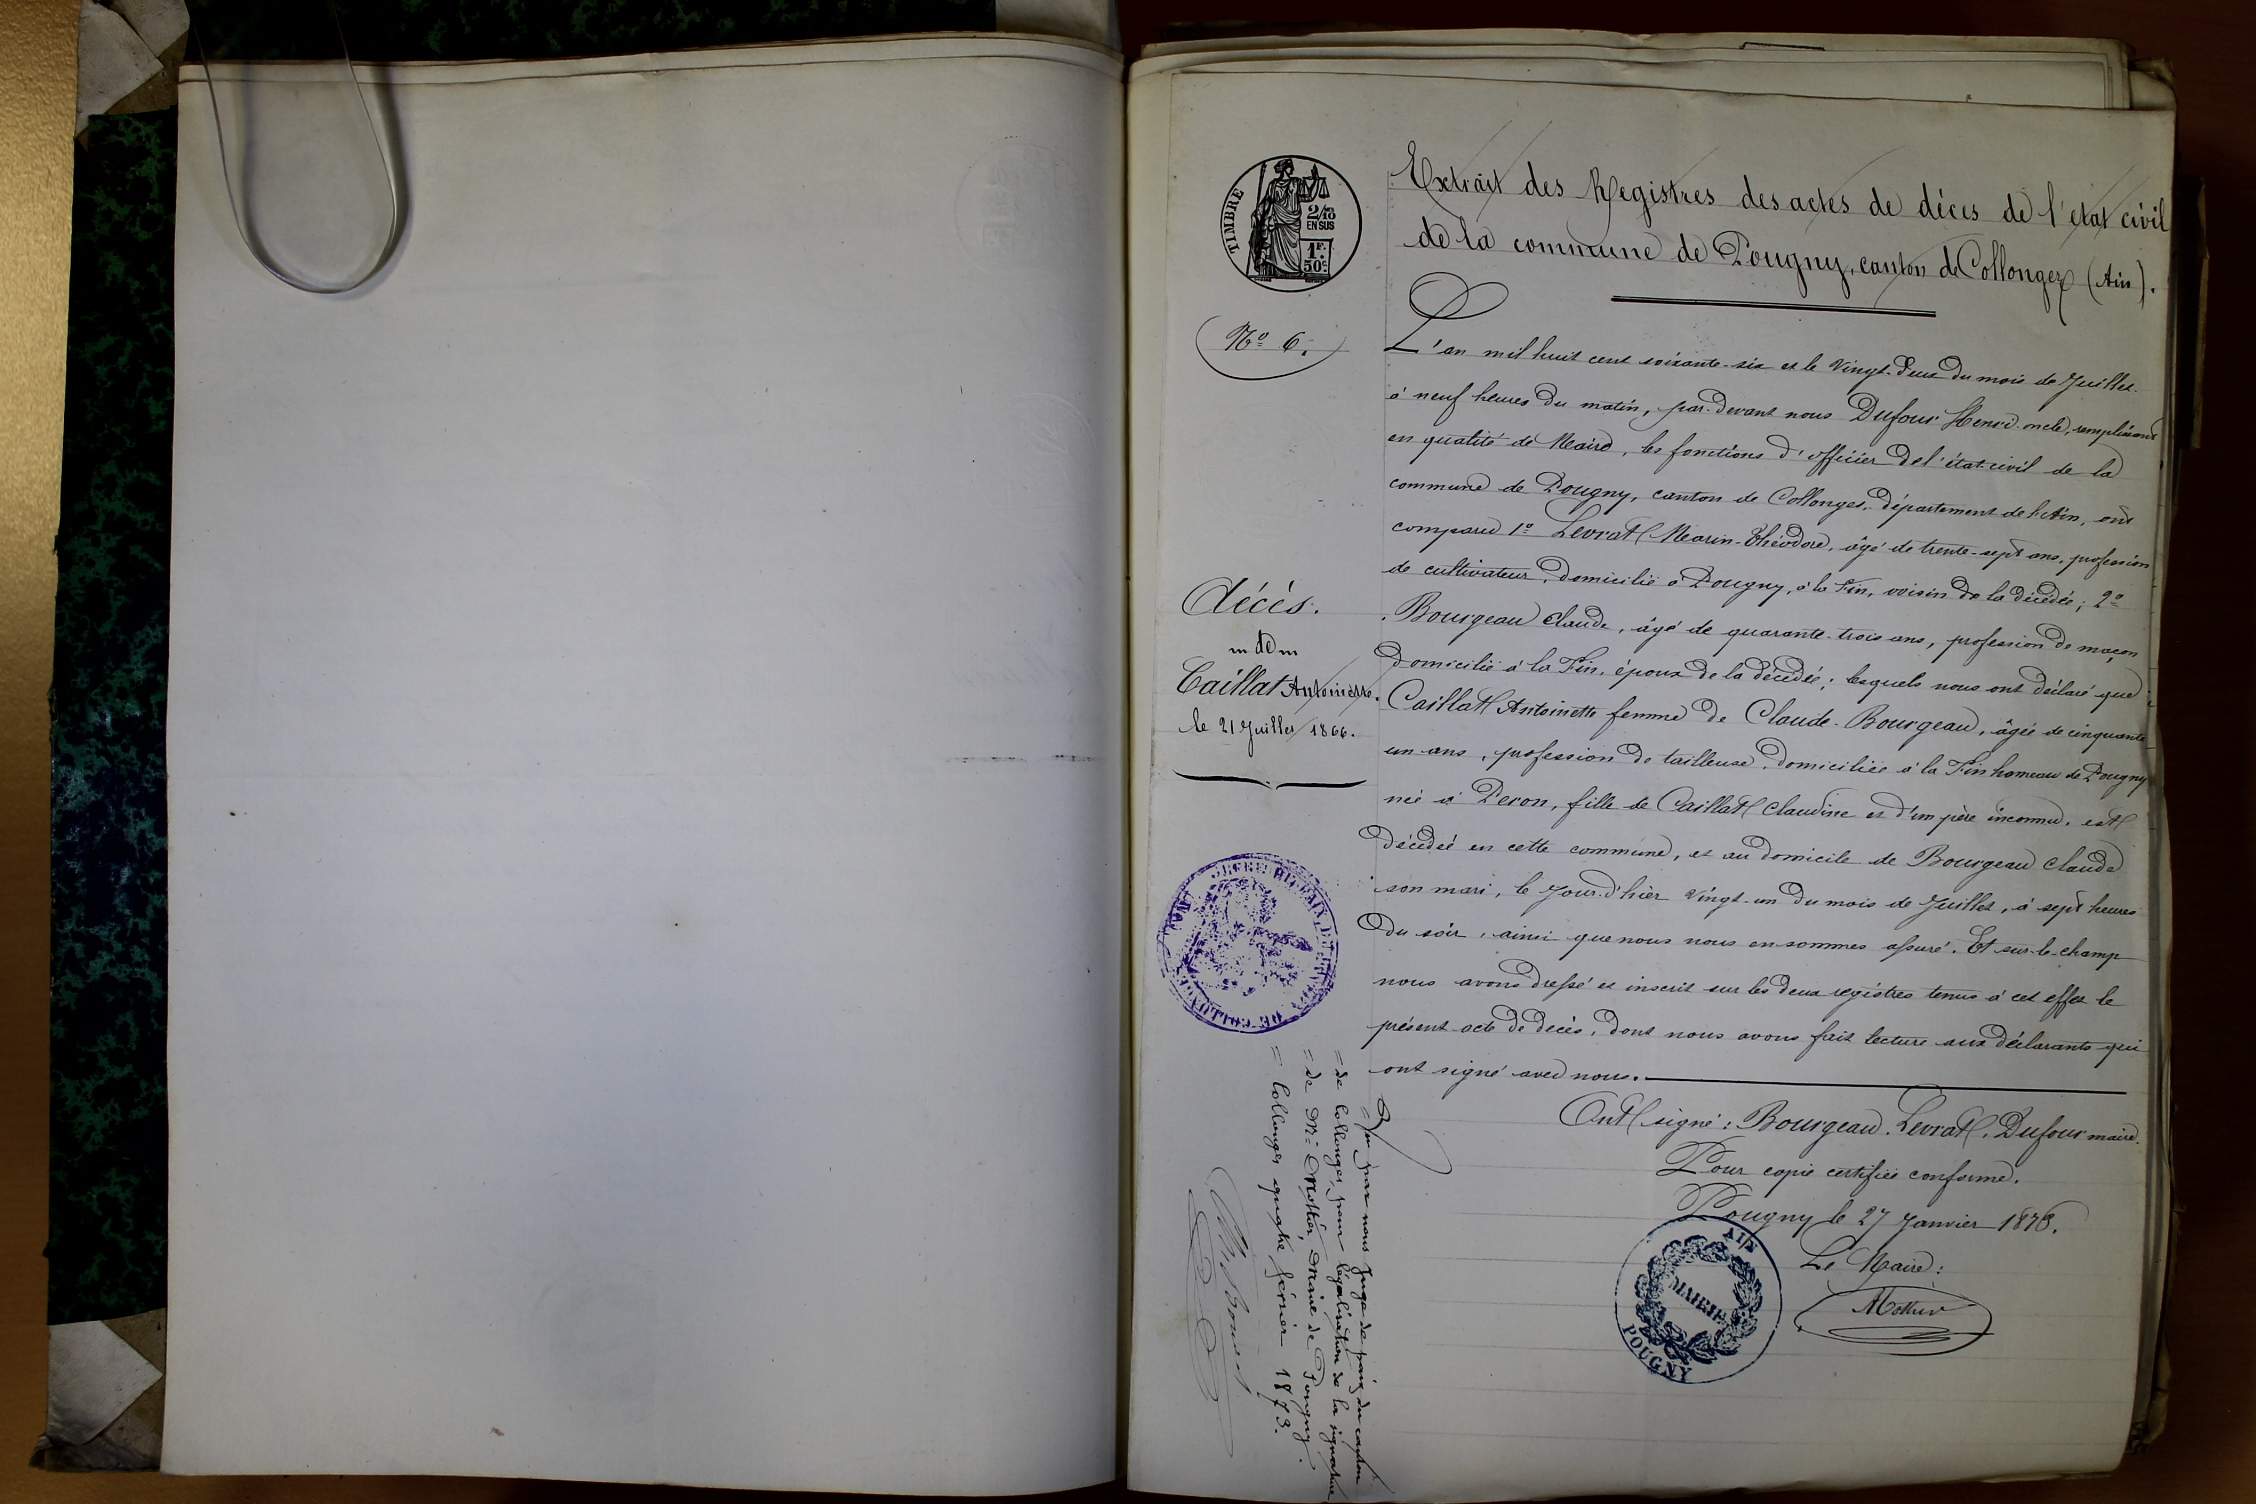 Extrait des Registres des actes de décès de l'état civil
de la commune de Pougny, canton de Collonges (Ain).
TIMBRE
2/10
EN SUS
1F.
50c
No 6.
L'an mil huit cent soixante-six et le vingt-deux du mois de Juillet
à neuf heures du matin, par-devant nous Dufour Henri oncle, remplissant
en qualité de Maire, les fonctions d'officier de l'état-civil de la
commune de Pougny, canton de Collonges, département de l'Ain, ont
comparu 1o Levrat Marin-Théodore, âgé de trente-sept ans, profession
de cultivateur, domicilié à Pougny, à la Fin, voisin de la décédée; 2o
Bourgeau Claude, âgé de quarante-trois ans, profession de maçon
domicilié à la Fin, époux de la décédée; lesquels nous ont déclaré que
Caillat Antoinette femme de Claude Bourgeau, âgée de cinquante
un ans, profession de tailleuse, domiciliée à la Fin hameau de Pougny
née à Peron, fille de Caillat Claudine et d'un père inconnu, est
décédée en cette commune, et au domicile de Bourgeau Claude
son mari, le jour d'hier vingt-un du mois de Juillet, à sept heures
du soir, ainsi que nous nous en sommes assuré. Et sur-le-champ
nous avons dressé et inscrit sur les deux registres tenus à cet effet le
présent acte de décès, dont nous avons fait lecture aux déclarants qui
ont signé avec nous.
Ont signé: Bourgeau. Levrat. Dufour maire.
Pour copie certifiée conforme.
Pougny le 27 Janvier 1873.
Le Maire:
Mottier
AIN
MAIRIE
POUGNY
décès.
de
Caillat Antoinette.
le 21 Juillet 1866.
DE COLLONGES
Vu par nous Juge de paix du canton
= de Collonges, pour légalisation de la signature
= de Mr Mottier, Maire de Pougny.
= Collonges quatre février 1873.